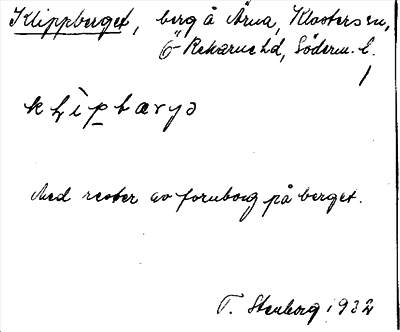 Klippberget, berg å Ärna, Klosters sn,
Ö Rekarne hd, Söderm. l.
Med rester av fornborg på berget.
T. Stenborg 1932